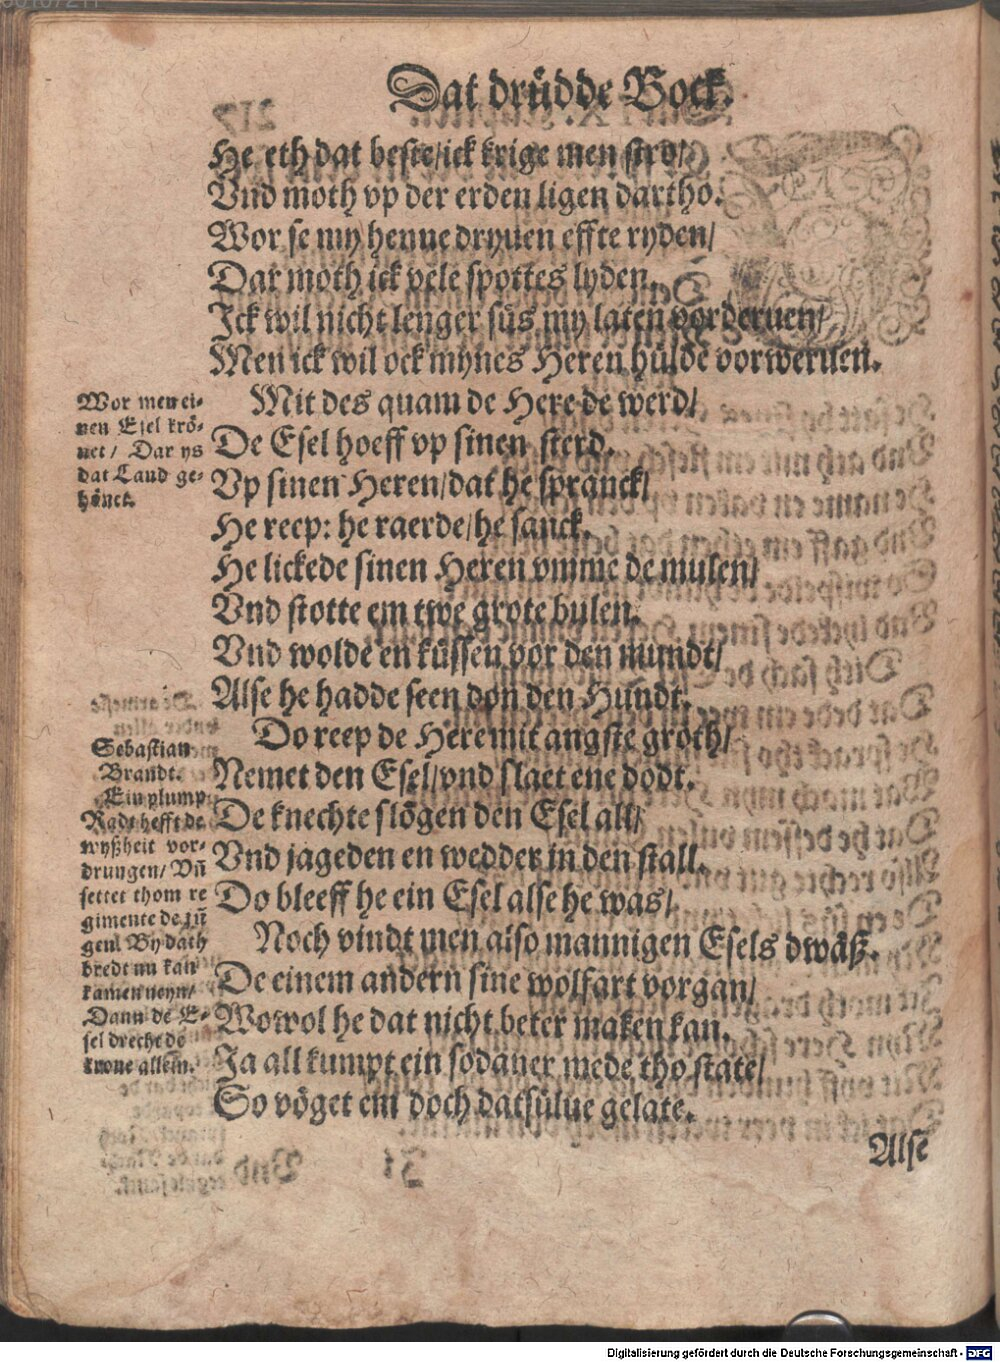 Dat drüdde Bock.
He eth dat beste/ ick krige men stro/
Vnd moth vp der erden ligen dartho.
Wor se my henne dryuen effte ryden/
Dar moth ick vele spottes lyden.
Ick wil nicht lenger süs my laten vorderuen/
Men ick wil ock mynes Heren hülde vorweruen.
Mit des quam de Here de werd/
De Esel hoeff vp sinen sterd.
Vp sinen Heren/ dat he spranck/
He reep: he raerde/ he sanck.
He lickede sinen Heren vmme de mulen/
Vnd stotte em twe grote bulen.
Vnd wolde en küssen vor den mundt/
Alse he hadde seen don den Hundt.
Do reep de Here mit angste groth/
Nemet den Esel/ vnd slaet ene dodt.
De knechte slögen den Esel all/
Vnd jageden en wedder in den stall.
Do bleeff he ein Esel alse he was/
Noch vindt men also mannigen Esels dwäß.
De einem andern sine wolfart vorgan/
Wowol he dat nicht beter maken kan.
Ja all kumpt ein sodaner mede tho state/
So vöget em doch datsülue gelate.
Alse
Wor men ei-
nen Esel krö-
net/ Dar ys
dat Land ge-
hönet.
Sebastian
Brandt.
Ein plump
Radt hefft de
wyßheit vor-
drungen/ Vñ
settet thom re
gimente de jũ
gen/ By dath
bredt nu kan
kamen neyn/
Dann de E-
sel drecht de
krone allein.
Digitalisierung gefördert durch die Deutsche Forschungsgemeinschaft - DFG